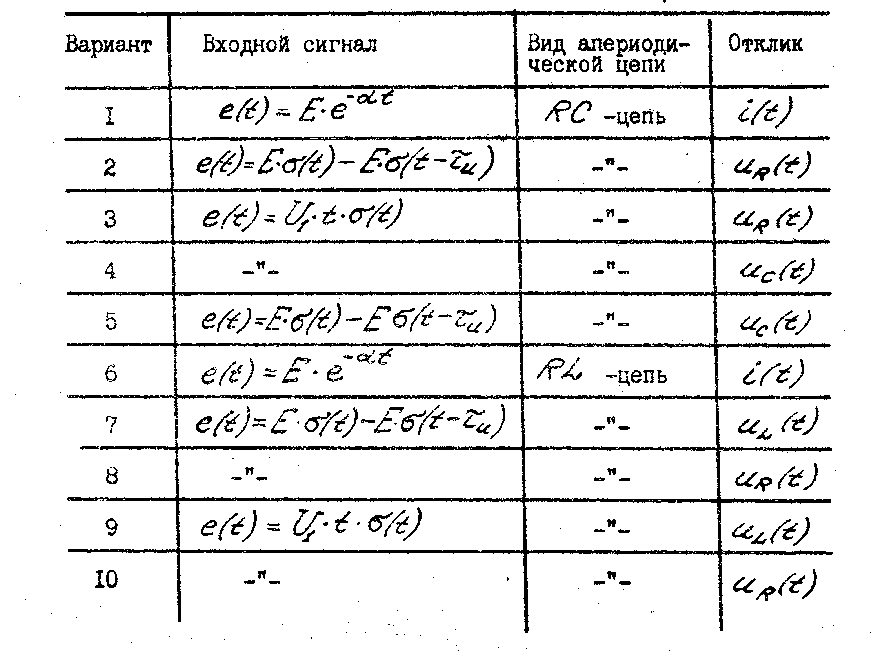 Вариант Входной сигнал Вид апериоди- Отклик
ческой цепи
I e(t) = E·e^{-αt} RC -цепь i(t)
2 e(t)=E·σ(t)-E·σ(t-τ_и) -"- u_R(t)
3 e(t) = U_1·t·σ(t) -"- u_R(t)
4 -"- -"- u_C(t)
5 e(t)=E·σ(t)-Eσ(t-τ_и) -"- u_C(t)
6 e(t) = E·e^{-αt} RL -цепь i(t)
7 e(t)=E·σ(t)-E·σ(t-τ_и) -"- u_L(t)
8 -"- -"- u_R(t)
9 e(t) = U_1·t·σ(t) -"- u_L(t)
IO -"- -"- u_R(t)